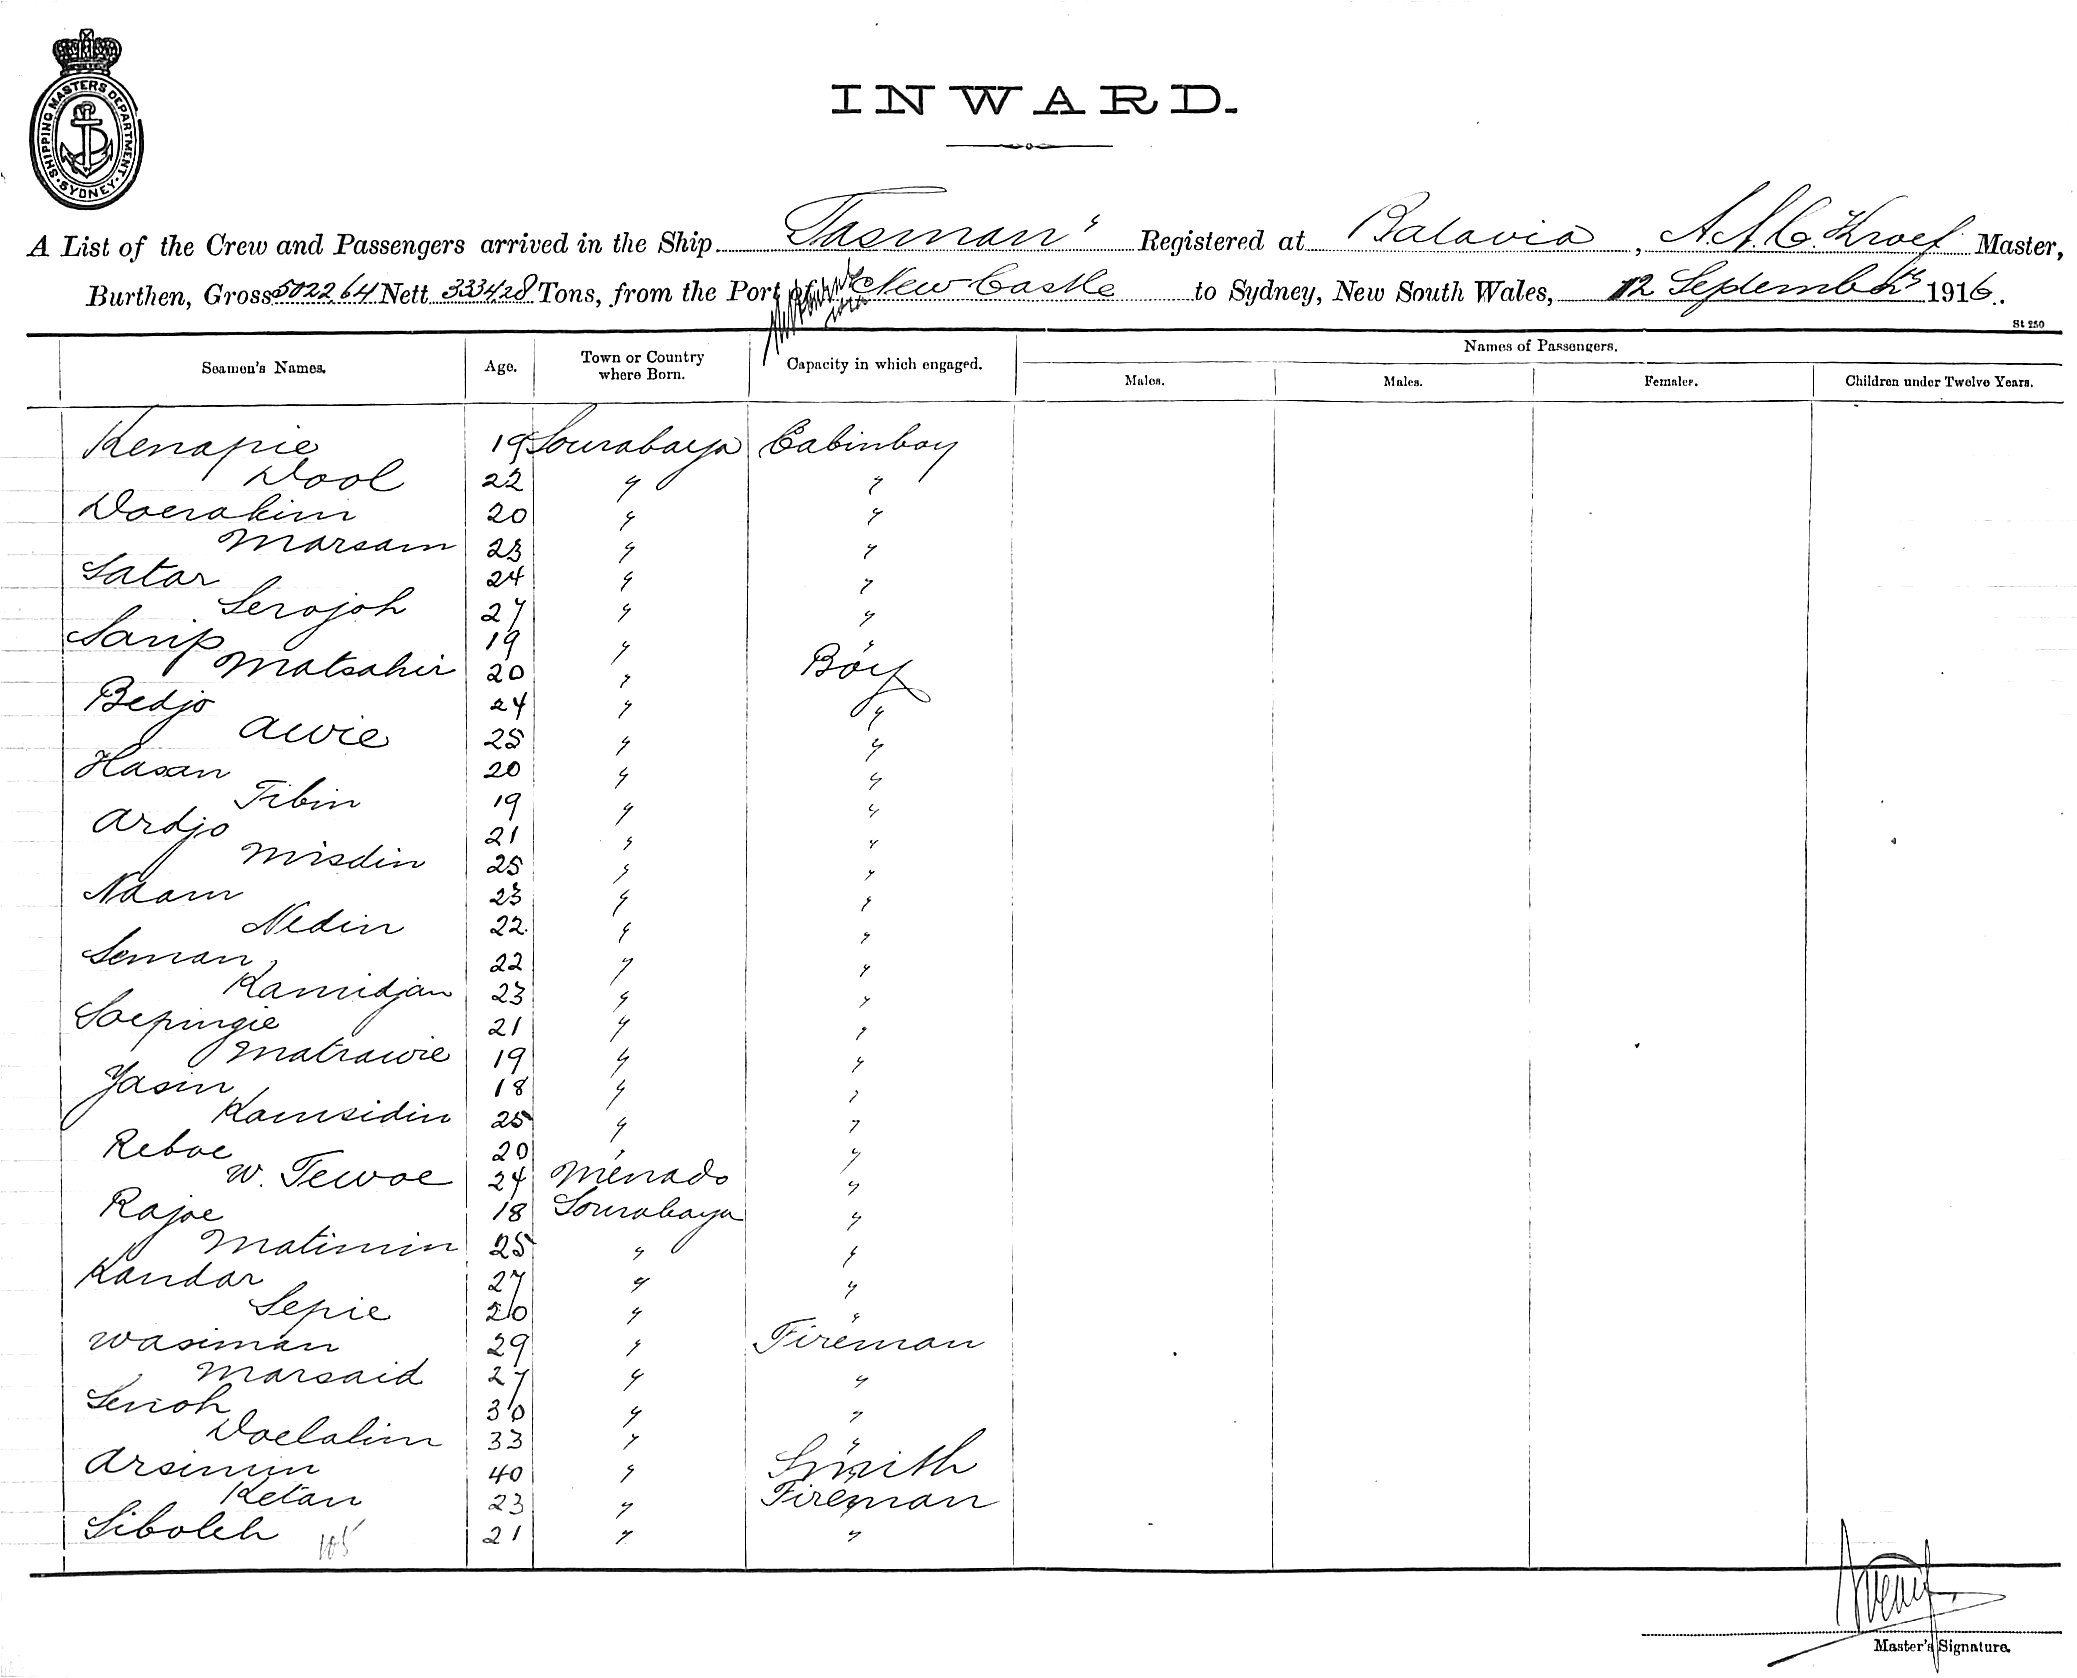 SHIPPING MASTERS DEPARTMENT
SYDNEY
INWARD.
A List of the Crew and Passengers arrived in the Ship "Tasman" Registered at Batavia, A.A.C. Kroef Master,
Burthen, Gross 502264 Nett 333428 Tons, from the Port of New Castle to Sydney, New South Wales, 12th September 1916.
St 250
Seamen's Names. Age. Town or Country where Born. Capacity in which engaged. Names of Passengers.
Males. Males. Females. Children under Twelve Years.
Kenapie 19 Sourabaya Cabinboy
Dool 22 " "
Doerakim 20 " "
Marsam 23 " "
Satar 24 " "
Serojoh 27 " "
Sarip 19 " "
Matsahir 20 " Boy
Bedjo 24 " "
Awie 25 " "
Hasan 20 " "
Tibin 19 " "
Ardjo 21 " "
Misdin 25 " "
Naam 23 " "
Nedin 22 " "
Seman 22 " "
Kamidjan 23 " "
Soepingie 21 " "
Matrawie 19 " "
Yasin 18 " "
Kamsidin 25 " "
Reboe 20 " "
W. Tewoe 24 Menado "
Rajoe 18 Sourabaya "
Matimin 25 " "
Kandar 27 " "
Sepie 20 " "
Wasiman 29 " Fireman
Marsaid 27 " "
Senoh 30 " "
Doelalim 33 " "
Arsimin 40 " Smith
Ketan 23 " Fireman
Siboleh 21 " "
105
Master's Signature.